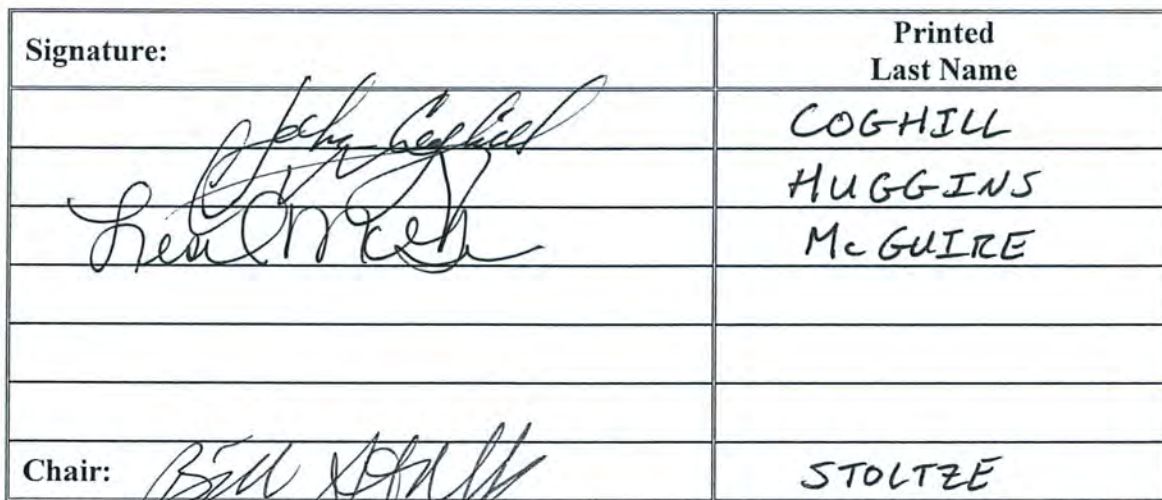 Signature:
Printed
Last Name
John Coghill
COGHILL
HUGGINS
Lesil McGuire
McGUIRE
Chair:
Bill Stoltze
STOLTZE